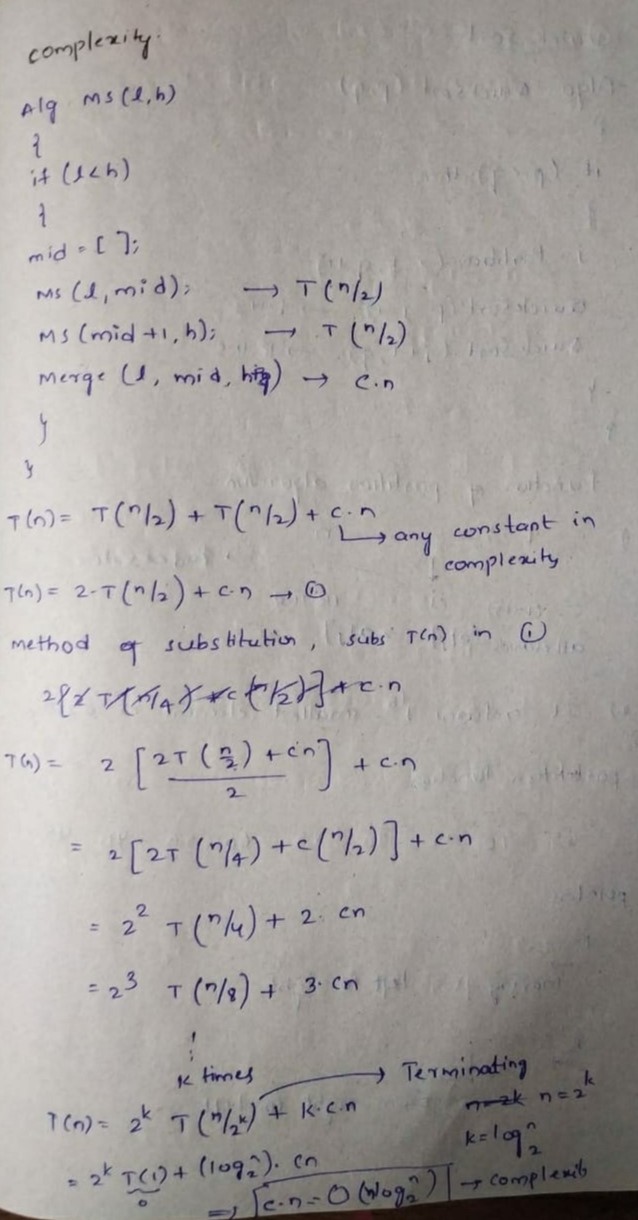 complexity.
Alg MS(l,h)
{
if (l<h)
{
mid = [ ];
MS (l, mid); → T(n/2)
MS (mid +1, h); → T(n/2)
Merge (l, mid, h) → c.n
}
}
T(n) = T(n/2) + T(n/2) + c.n
↳ any constant in
complexity
T(n) = 2·T(n/2) + c·n → ①
method of substitution, subs T(n) in ①
T(n) = 2 [2T(n/2) + cn / 2] + c.n
= 2[2T (n/4) + c(n/2)] + c·n
= 2² T(n/4) + 2. cn
= 2³ T(n/8) + 3. cn
⋮
K times → Terminating
T(n) = 2ᵏ T(n/2ᵏ) + k.c.n n = 2ᵏ
k = log₂ⁿ
= 2ᵏ T(1) + (log₂ⁿ). cn
0
⇒ c.n = O(nlog₂ⁿ) → complexib